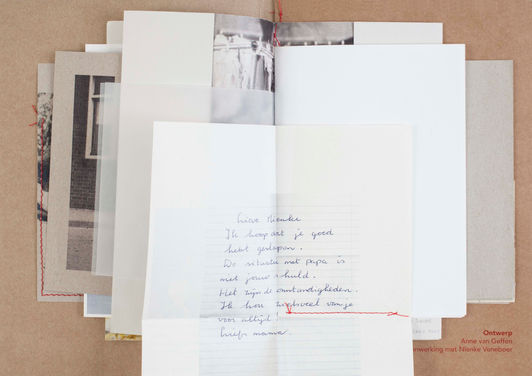 Lieve Nienke
Ik hoop dat je goed
hebt geslapen.
De situatie met papa is
niet jouw schuld.
Het zijn de omstandigheden.
Ik hou zoveel van je
voor altijd!
liefs mama.
Ontwerp
Anne van Geffen
enwerking met Nienke Veneboer